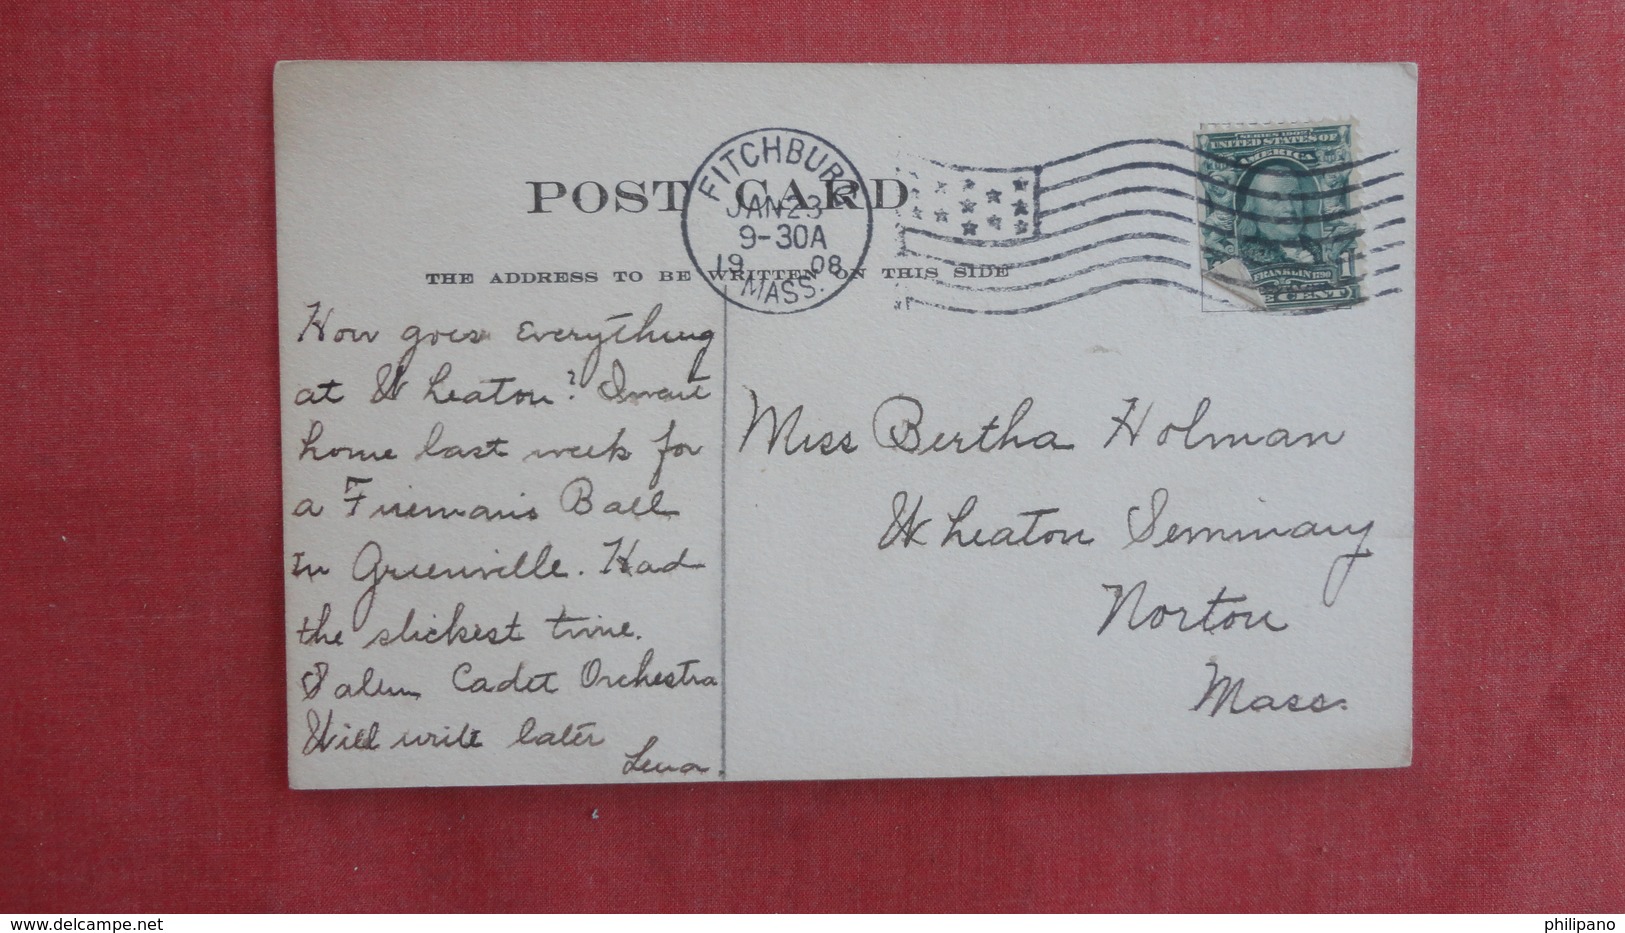 POST CARD
THE ADDRESS TO BE WRITTEN ON THIS SIDE
FITCHBURG
JAN 23
9-30A
1908
MASS.
SERIES 1902
UNITED STATES OF
AMERICA
FRANKLIN 1790
1
E CENT
How goes everything
at Wheaton? I went
home last week for
a Fireman's Ball
In Greenville. Had
the slickest time.
Salem Cadet Orchestra
Will write later
Lena.
Miss Bertha Holman
Wheaton Seminary
Norton
Mass.
delcampe.net
philipano